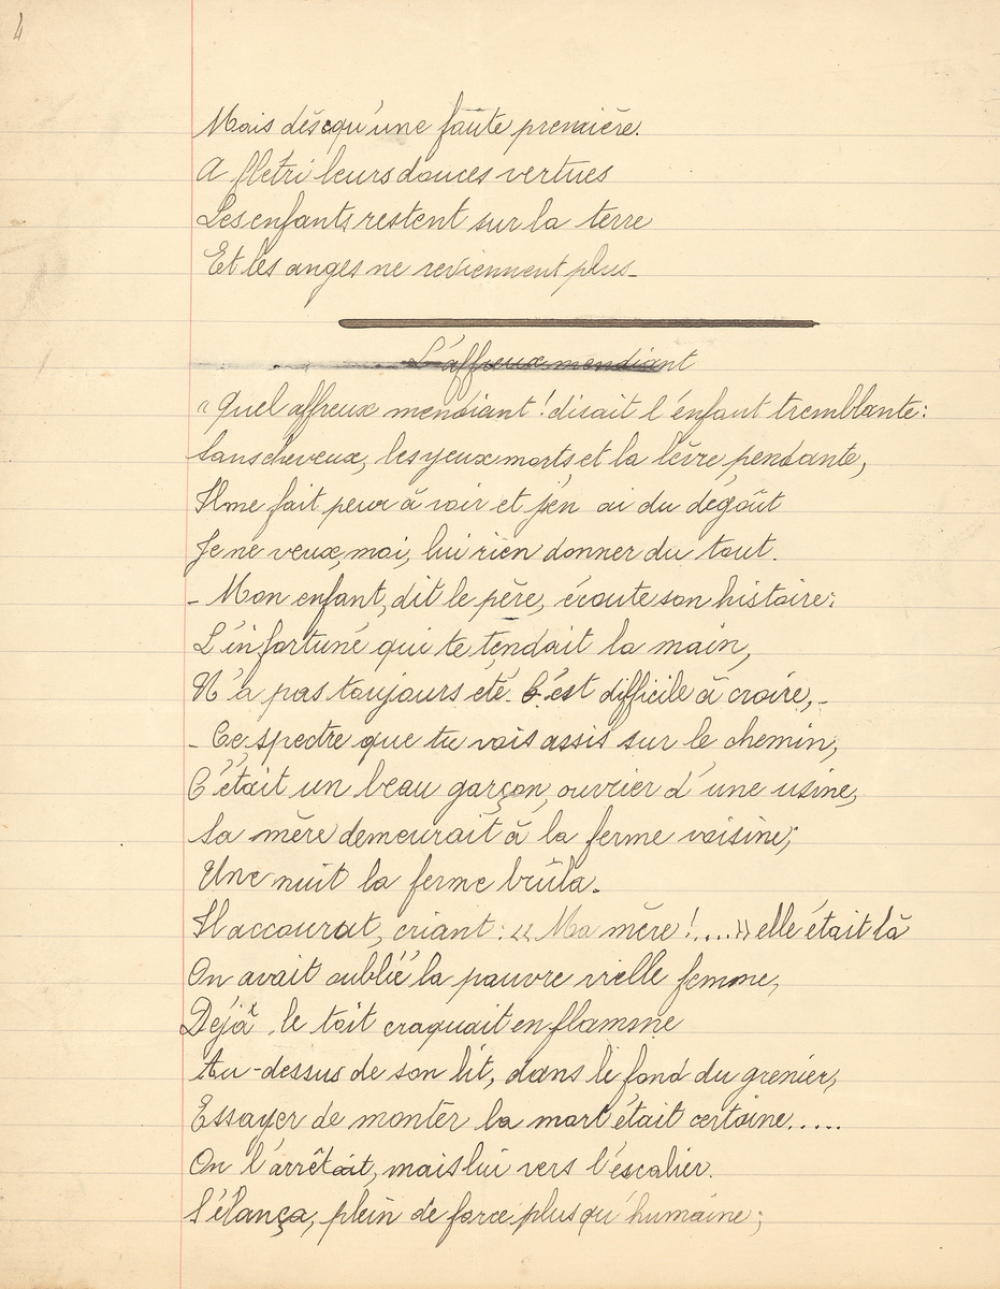 4
Mais dès qu'une faute première.
A flétri leurs douces vertues
Les enfants restent sur la terre
Et les anges ne reviennent plus_
L'affreux mendiant
"Quel affreux mendiant! disait l'énfant tremblante:
Sans cheveux, les yeux morts et la lèvre pendante,
Il me fait peur à voir et j'en ai du dégoût
Je ne veux, moi, lui rien donner du tout.
- Mon enfant, dit le père, écoute son histoire:
L'infortuné qui te tendait la main,
N'a pas toujours été. C'est difficile à croire,-
- Ce spectre que tu vois assis sur le chemin,
C'était un beau garçon, ouvrier d'une usine,
Sa mère demeurait à la ferme voisine;
Une nuit la ferme brûla.
Il accourut, criant: «Ma mère!....» elle était là
On avait oublié la pauvre vielle femme,
Déjà le toit craquait en flamme
Au-dessus de son lit, dans le fond du grenier,
Essayer de monter la mort était certaine.....
On l'arrêtait, mais lui vers l'escalier.
S'élança, plein de force plus qu'humaine;